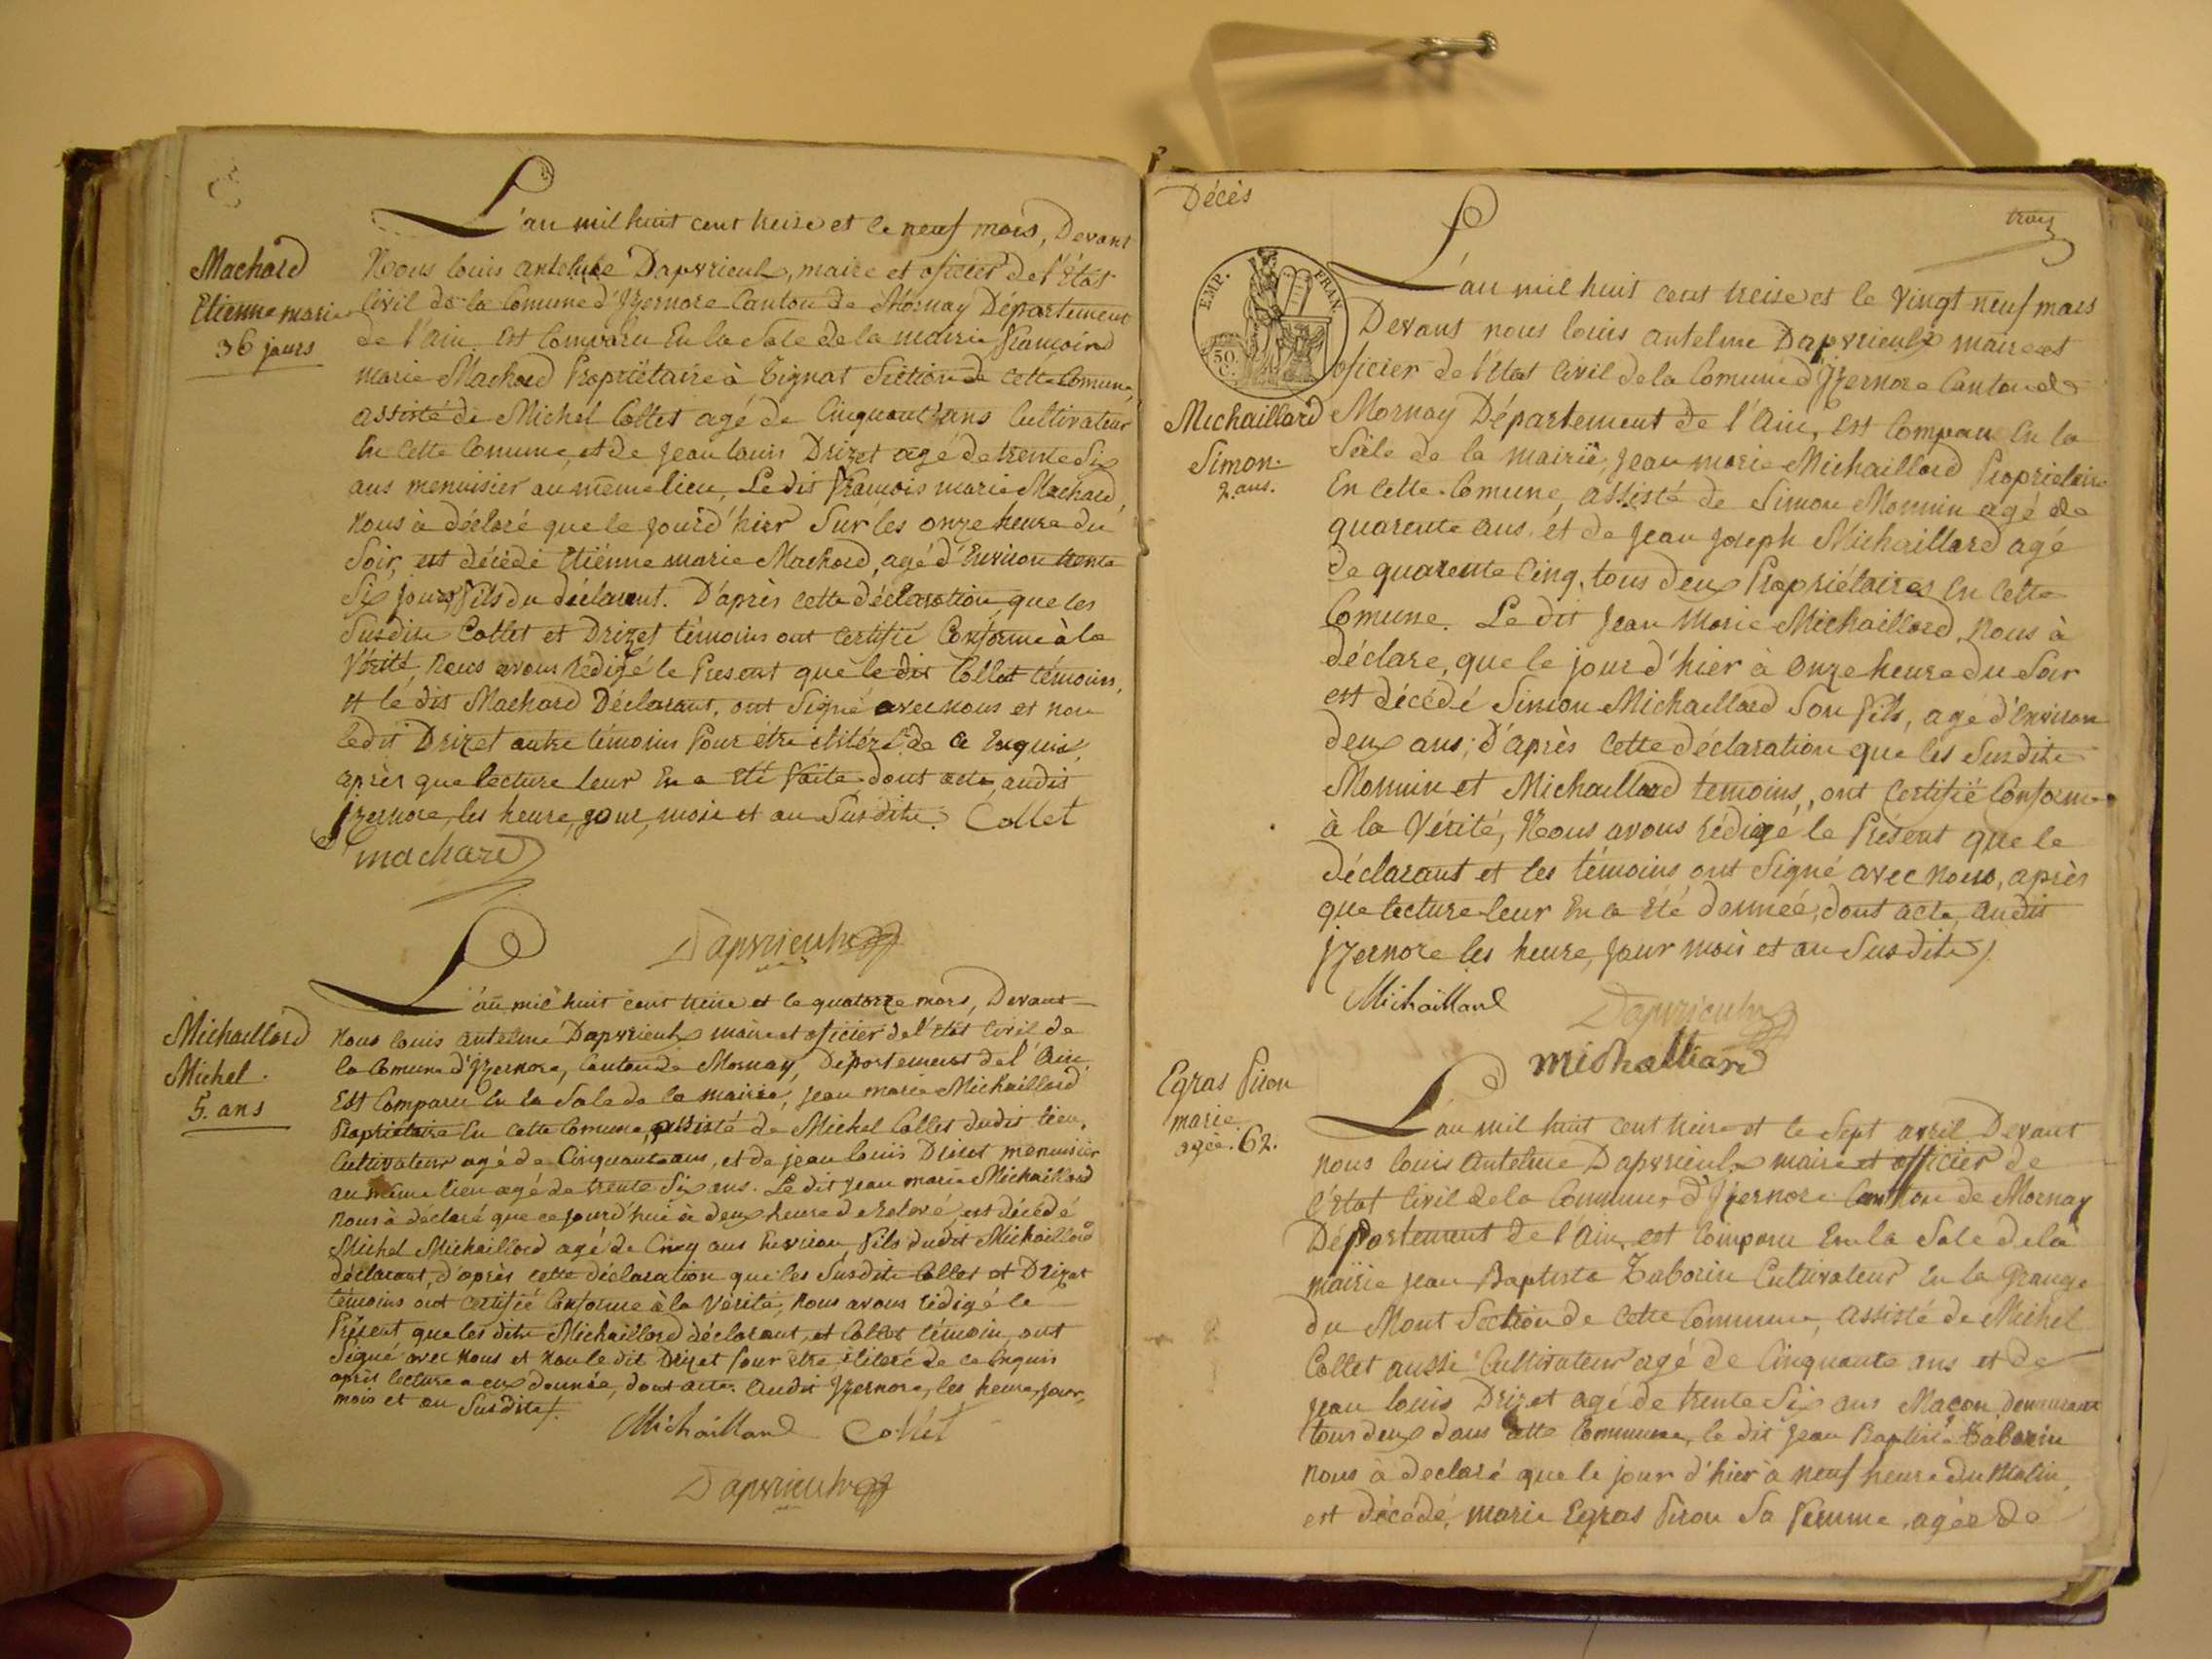 L'an mil huit cent treize et le neuf mars, Devant
Machard
Etienne marie
36 jours
Nous louis antelme Dapvrieulx, maire et oficier de l'Etat
Civil de la Comune d'Izernore Canton de Mornay Département
de l'Ain, est Comparu En la Sale de la mairie Francoird
marie Machard Propriëtaire à Tignat Section de Cette Comune,
assisté de Michel Collet agé de Cinquante ans Cultivateur
En Cette Comune, et de Jean louis Drizet agé de trente Six
ans menuisier au même lieu, Le dit François marie Machard,
Nous à déclaré que le jour d'hier Sur les onze heure du
Soir, est décédé Etiénne marie Machard, agé d'Environ trente
Six jours, fils du déclarent. D'après cette déclaration que les
Susdits Collet et Drizet témoins ont Certifié Conforme à la
Vérité, Nous avons rédigé le Présent que le dit Collet témoins,
et le dit Machard Déclarant, ont Signé avec nous et non
ledit Drizet autre témoins Pour être ilitéré de ce Enquis,
après que lecture leur En a Eté Faite dont acte, audit
Jzernore, les heure, jour, mois et an Susdits. Collet
machard
Dapvrieulx
L'an mil huit cent treize et le quatorze mars, Devant
Michaillard
Michel.
5. ans
Nous louis antelme Dapvrieulx maire et oficier de l'Etat Civil de
la Comune d'Jzernore, Canton de Mornay, Département de l'Ain,
Est Comparu En la Sale de la mairie, Jean marie Michaillard
Propriétaire En cette Comune, assisté de Michel Collet dudit lieu,
Cultivateur agé de Cinquante ans, et de jean louis Drizet menuisier
au même lieu agé de trente Six ans. Le dit jean marie Michaillard
Nous à déclaré que ce jourd'hui à deux heure de relevé, est décédé
Michel Michaillard agé de Cinq ans Environ, Fils dudit Michaillard
déclarant, d'après cette déclaration que les Susdits Collet et Drizet
témoins ont Certifié Conforme à la Vérité, Nous avons rédigé le
Présent que les dits Michaillard déclarant, et Collet témoin, ont
Signé avec Nous et Non le dit Drizet Pour être iliteré de ce Enquis
après lecture a eux donnée, dont acte. Audit Jzernore, les heure, jour,
mois et an Susdits.
Michaillard Collet
Dapvrieulx
Décès
trois
EMP. FRAN.
50.
C.
L'an mil huit cent treize et le Vingt neuf mars
Devant nous louis antelme Dapvrieulx maire et
oficier de l'Etat Civil de la Comune d'Jzernore Canton de
Michaillard
Simon.
2. ans.
Mornay Département de l'Ain, est Comparu En la
Sale de la mairie, Jean marie Michaillard Proprietaire
En Cette Comune, assisté de Simon Monnin agé de
quarente ans et de Jean Joseph Michaillard agé
de quarente Cinq, tous deux Propriétaires En Cette
Comune. Le dit Jean Marie Michaillard, Nous à
déclare, que le jour d'hier à Onze heure du Soir
est décédé Simon Michaillard Son fils, agé d'Environ
deux ans; d'après Cette déclaration que les Susdits
Monnin et Michaillard temoins, ont Certifié Conforme
à la Vérité, Nous avons rédigé le Présent que le
Déclarant et les témoins ont Signé avec Nous, après
que lecture leur En a Eté donnée, dont acte, audit
Jzernore les heure, Jour mois et an Susdits.
Michaillard
Dapvrieulx
Michalliard
L'an mil huit Cent treize et le Sept avril Devant
Egras Piron
marie
agée. 62.
nous louis Antelme Dapvrieulx maire et officier de
l'Etat Civil de la Commune d'Jzernore Canton de Mornay
Département de l'Ain, est Comparu En la Sale de la
mairie Jean Baptiste Taborin Cultivateur En la Grange
du Mont Section de Cette Commune, Assisté de Michel
Collet aussi Cultivateur agé de Cinquante ans et de
Jean louis Drizet agé de trente Six ans Macon demeurant
tous deux dans Cette Commune, le dit Jean Baptiste Taborin
Nous à declaré que le jour d'hier à Neuf heure du Matin,
est décédé, marie Egras Piron Sa Femme, agée de